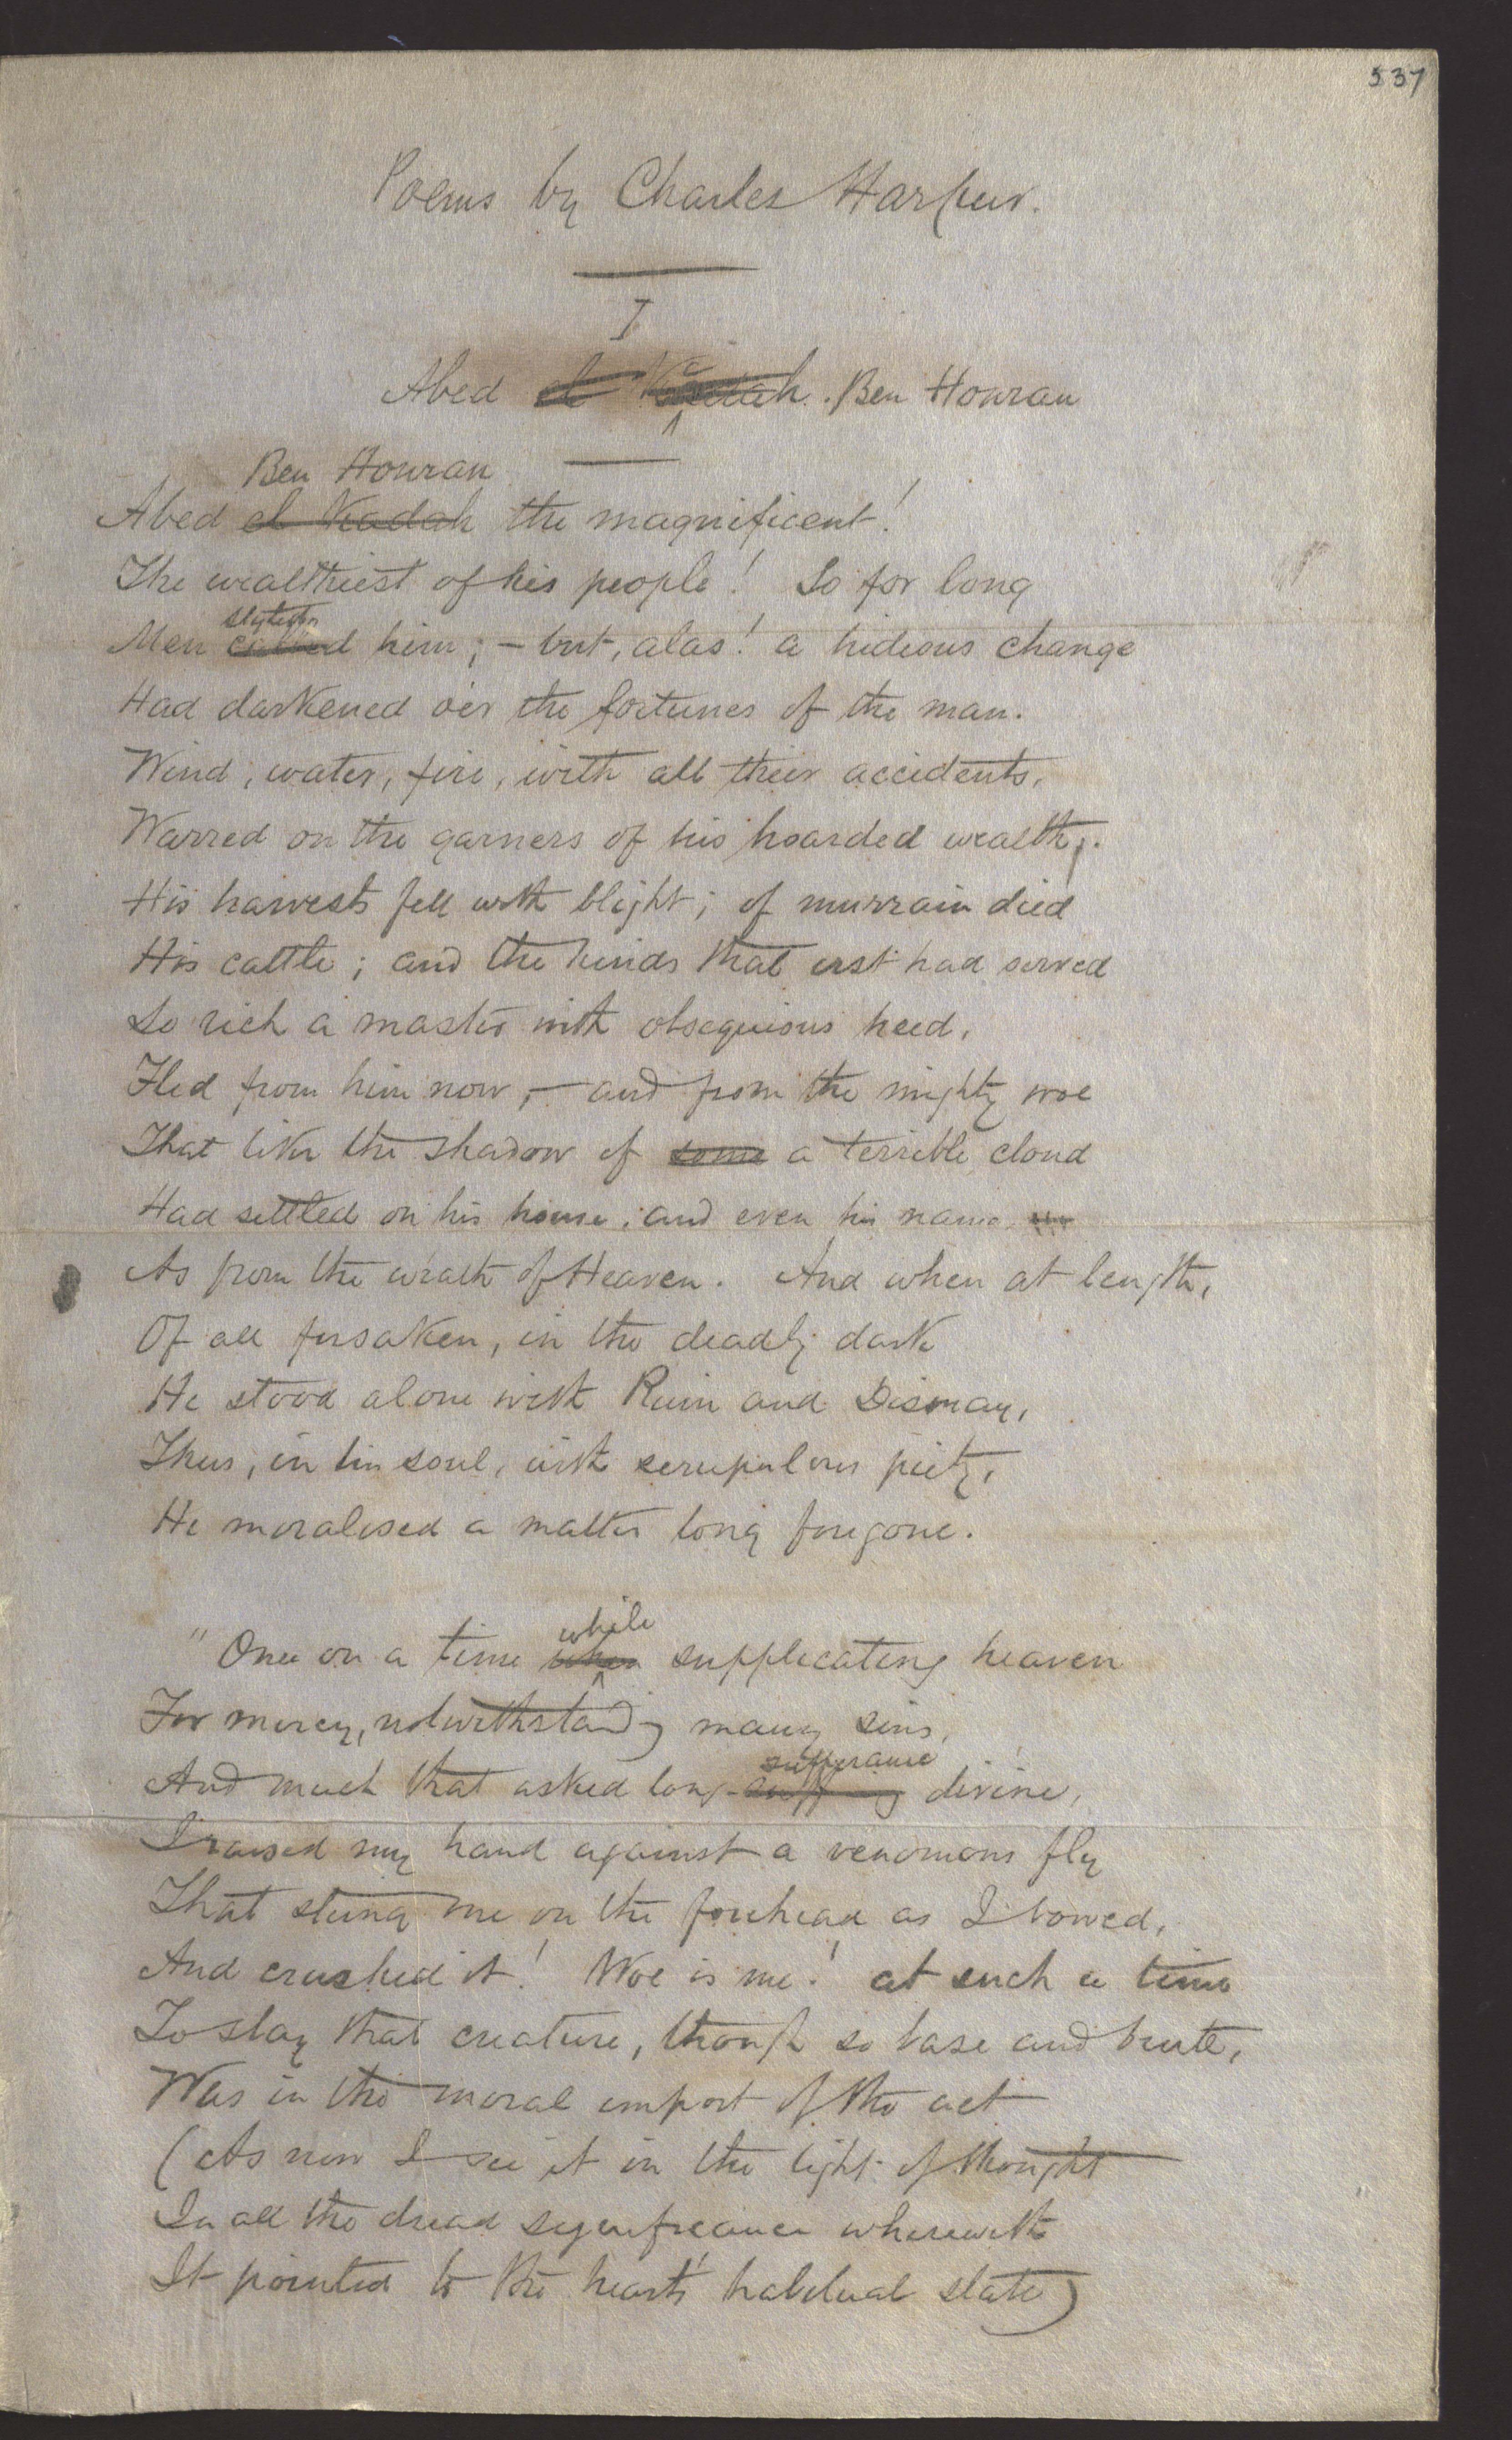 537
Poems by Charles Harpur.
I
Abed el Kadah. Ben Houran
Ben Houran
Abed el Kadah the magnificent!
The wealthiest of his people! So for long
styled
Men called him; — but, alas! a hideous change
Had darkened o'er the fortunes of the man.
Wind, water, fire, with all their accidents,
Warred on the garners of his hoarded wealth;.
His harvests fell with blight; of murrain died
His cattle; and the hinds that erst had served
So rich a master with obsequious heed,
Fled from him now, — and from the mighty woe
That like the shadow of some a terrible cloud
Had settled on his house; and even his name,
As from the wrath of Heaven. And when at length,
Of all forsaken, in the deadly dark
He stood alone with Ruin and Dismay,
Thus, in his soul, with scrupulous piety,
He moralised a matter long foregone.
while
"Once on a time when supplicating heaven
For mercy, notwithstanding many sins,
sufferance
And much that asked long-suffering divine,
I raised my hand against a venomous fly
That stung me on the forehead as I bowed,
And crushed it! Woe is me! at such a time
To slay that creature, though so base and brute,
Was in the moral import of the act
(As now I see it in the light of thought
In all the dread significance wherewith
It pointed to the heart's habitual state)